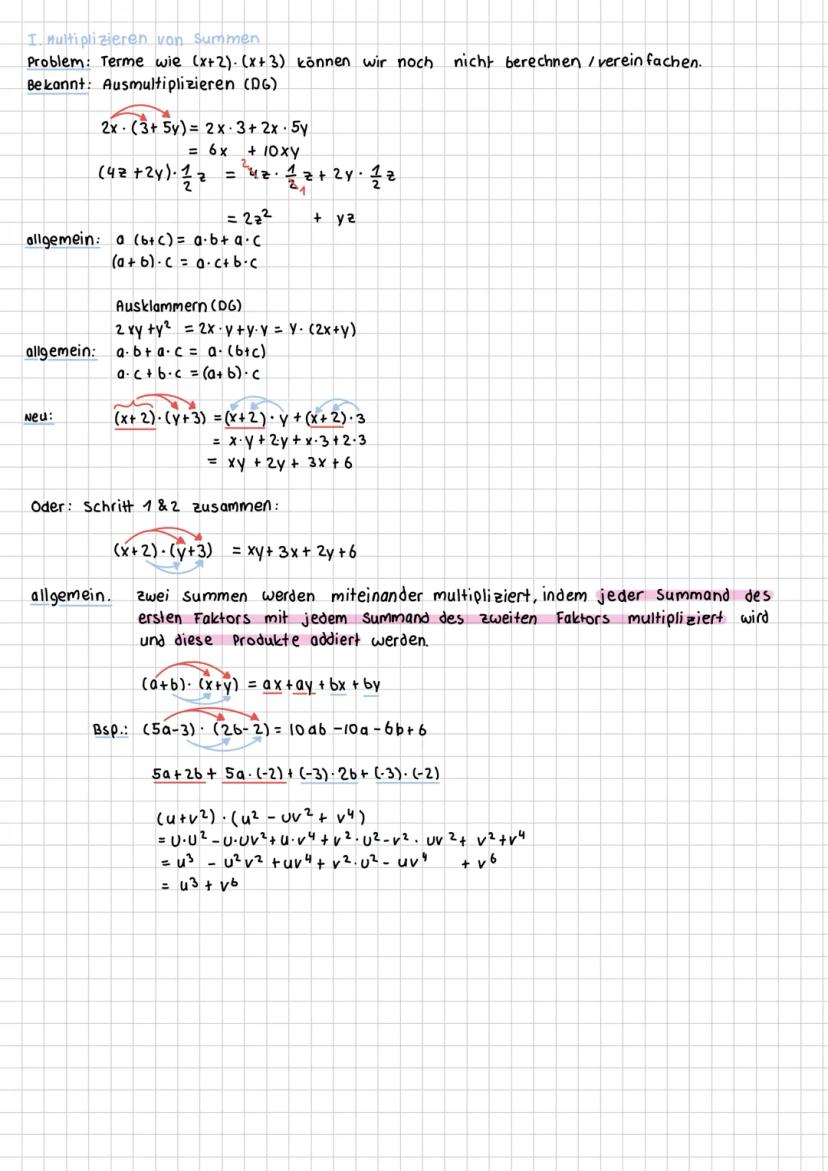 I. Multiplizieren von Summen
Problem: Terme wie (x+2)·(x+3) können wir noch nicht berechnen / vereinfachen.
Bekannt: Ausmultiplizieren (DG)
2x · (3+ 5y) = 2x · 3 + 2x · 5y
= 6x + 10xy
(4z + 2y) · 1/2 z = ²4z · 1/2₁ z + 2y · 1/2 z
= 2z² + yz
allgemein: a (b+c) = a·b + a·c
(a+b)·c = a·c + b·c
Ausklammern (DG)
2xy + y² = 2x·y + y·y = y·(2x+y)
allgemein: a·b + a·c = a·(b+c)
a·c + b·c = (a+b)·c
Neu: (x+2)·(y+3) = (x+2)·y + (x+2)·3
= x·y + 2·y + x·3 + 2·3
= xy + 2y + 3x + 6
Oder: Schritt 1 & 2 zusammen:
(x+2)·(y+3) = xy + 3x + 2y + 6
allgemein. zwei Summen werden miteinander multipliziert, indem jeder Summand des
ersten Faktors mit jedem Summand des zweiten Faktors multipliziert wird
und diese Produkte addiert werden.
(a+b)·(x+y) = ax + ay + bx + by
Bsp.: (5a-3)·(2b-2) = 10ab - 10a - 6b + 6
5a + 2b + 5a·(-2) + (-3)·2b + (-3)·(-2)
(u+v²)·(u² - uv² + v⁴)
= u·u² - u·uv² + u·v⁴ + v²·u² - v²·uv² + v² + v⁴
= u³ - u²v² + uv⁴ + v²·u² - uv⁴ + v⁶
= u³ + v⁶